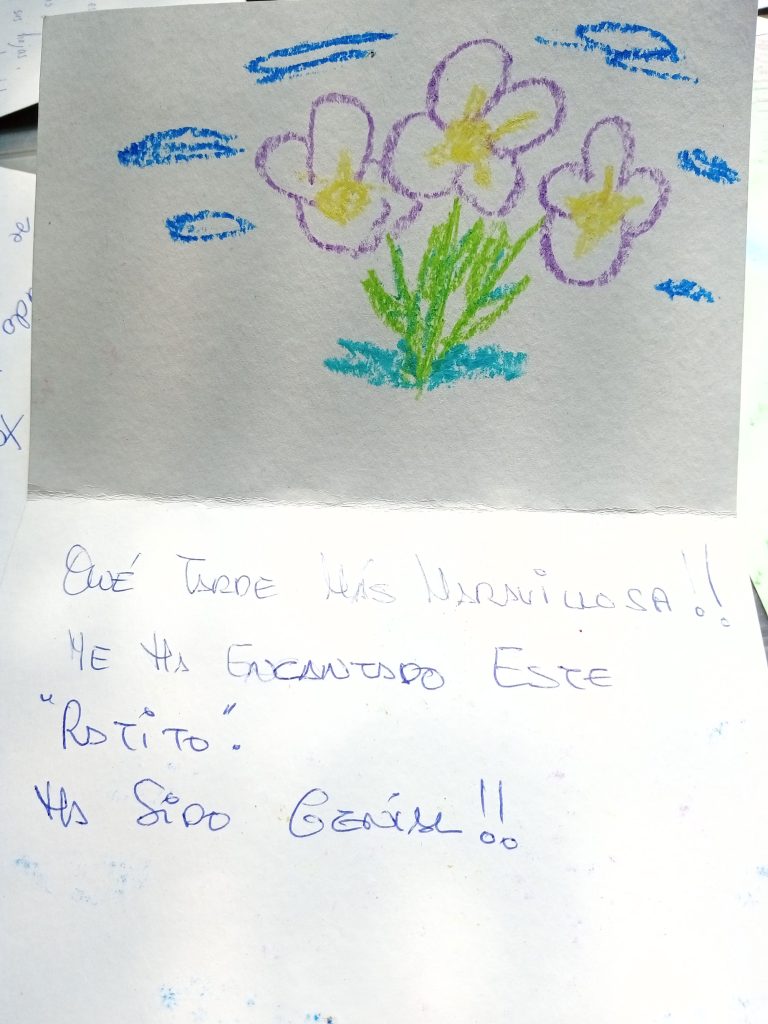 QUÉ TARDE MÁS MARAVILLOSA!!
ME HA ENCANTADO ESTE
"RATITO".
HA SIDO GENIAL!!
de